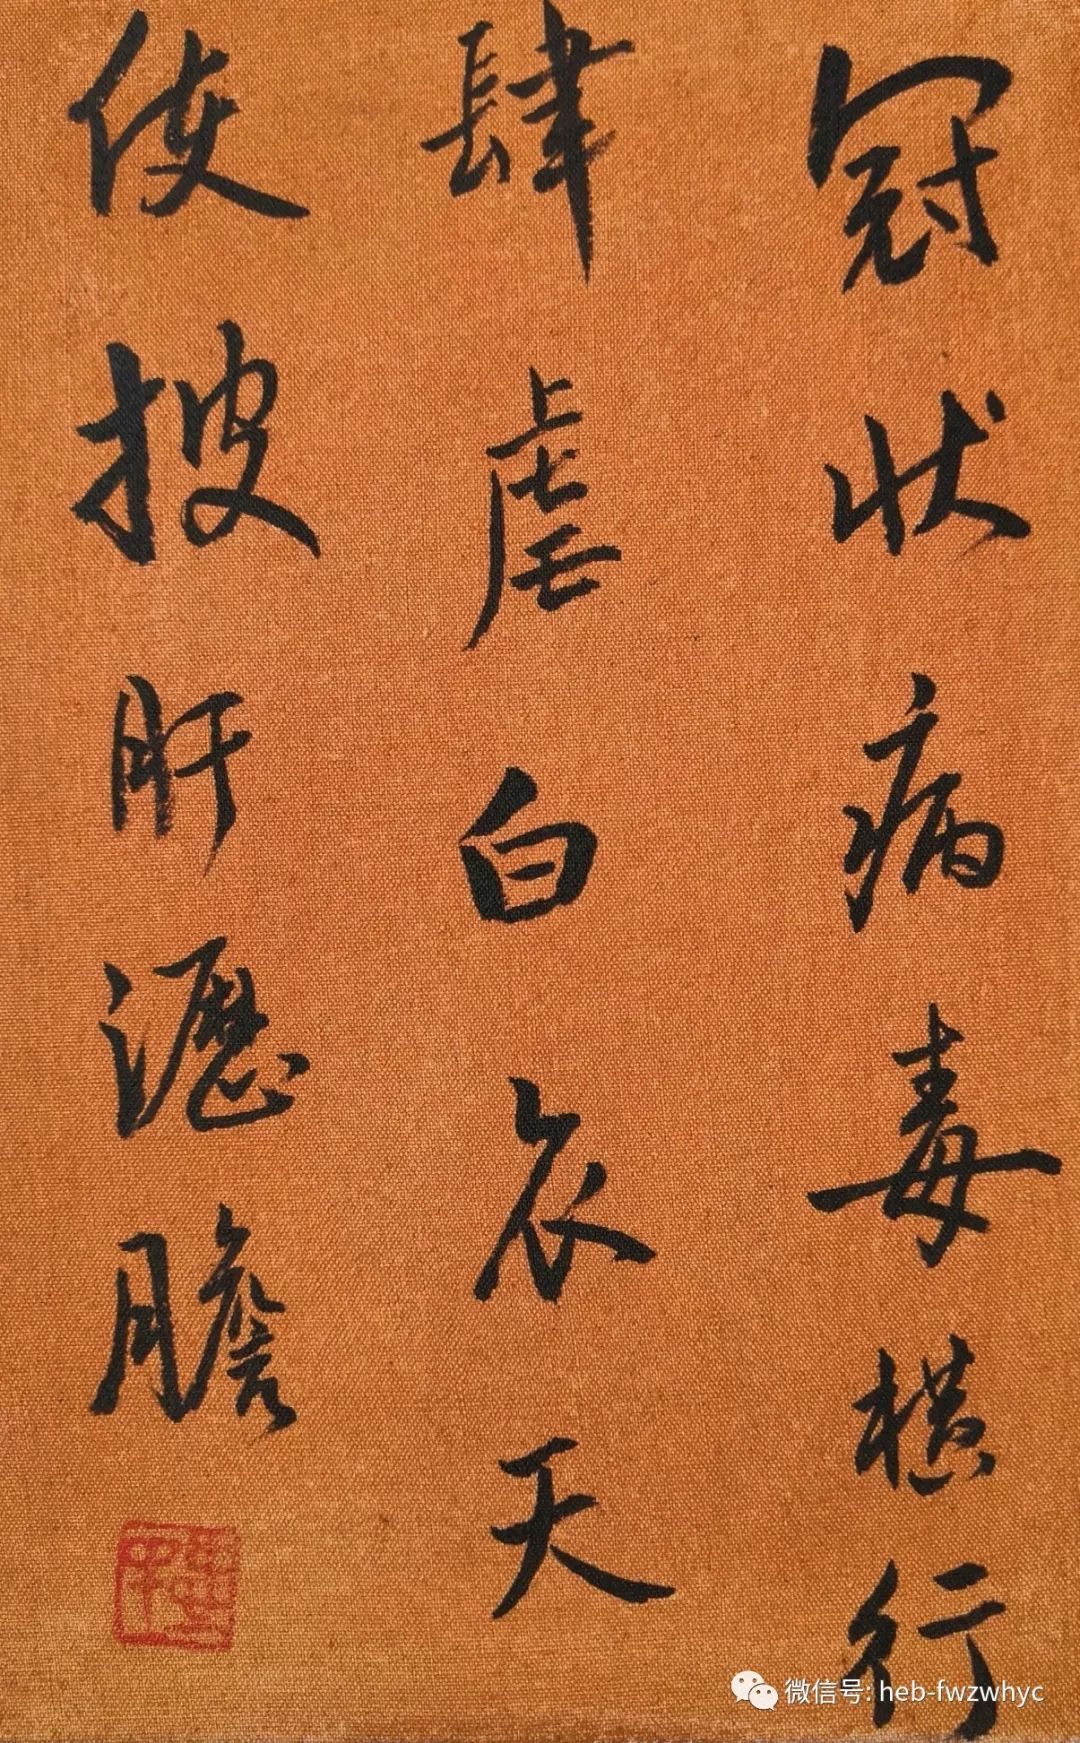 冠状病毒横行
肆虐白衣天
使披肝沥胆
微信号: heb-fwzwhyc